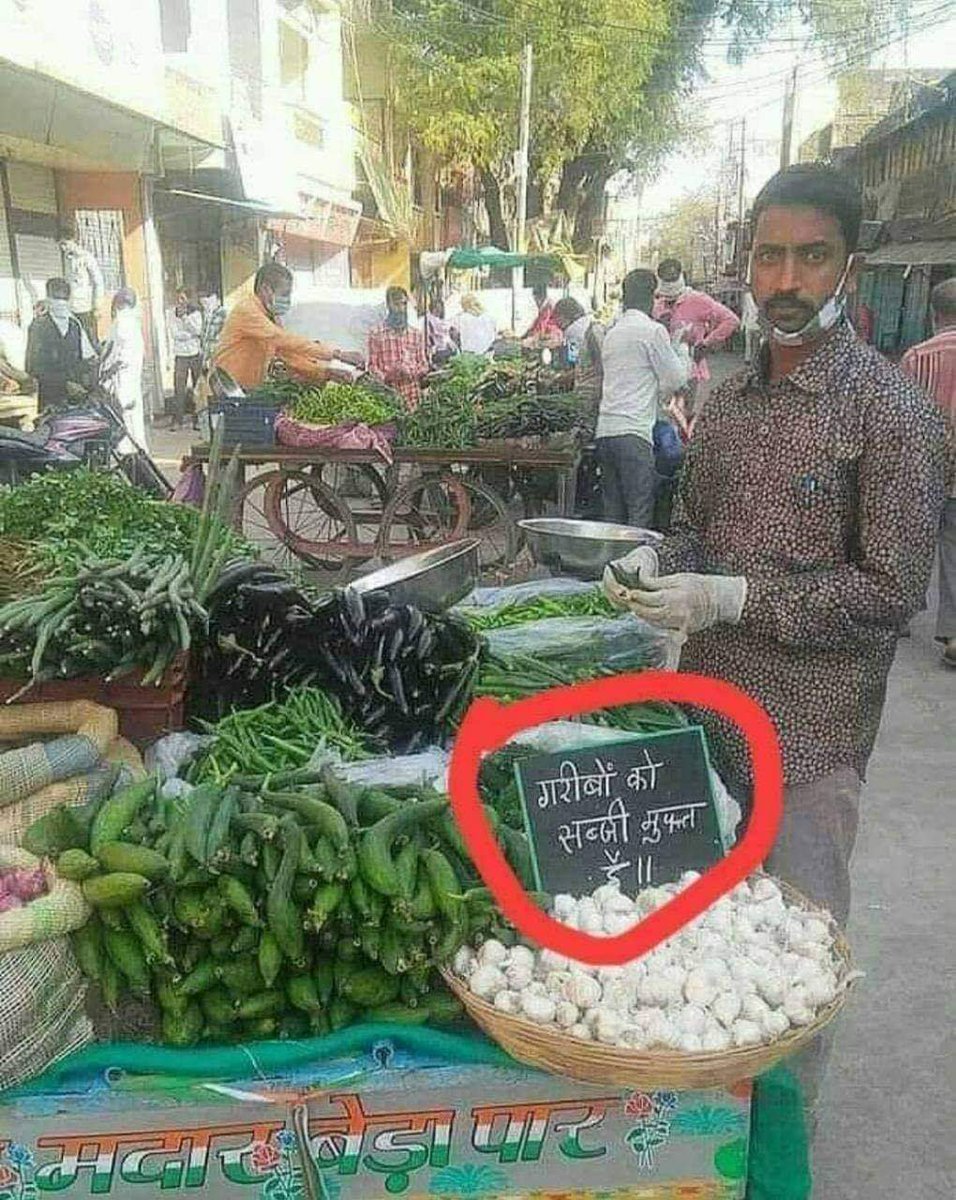 गरीबों को
सब्जी मुफ्त
है॥
मदार बेड़ा पार